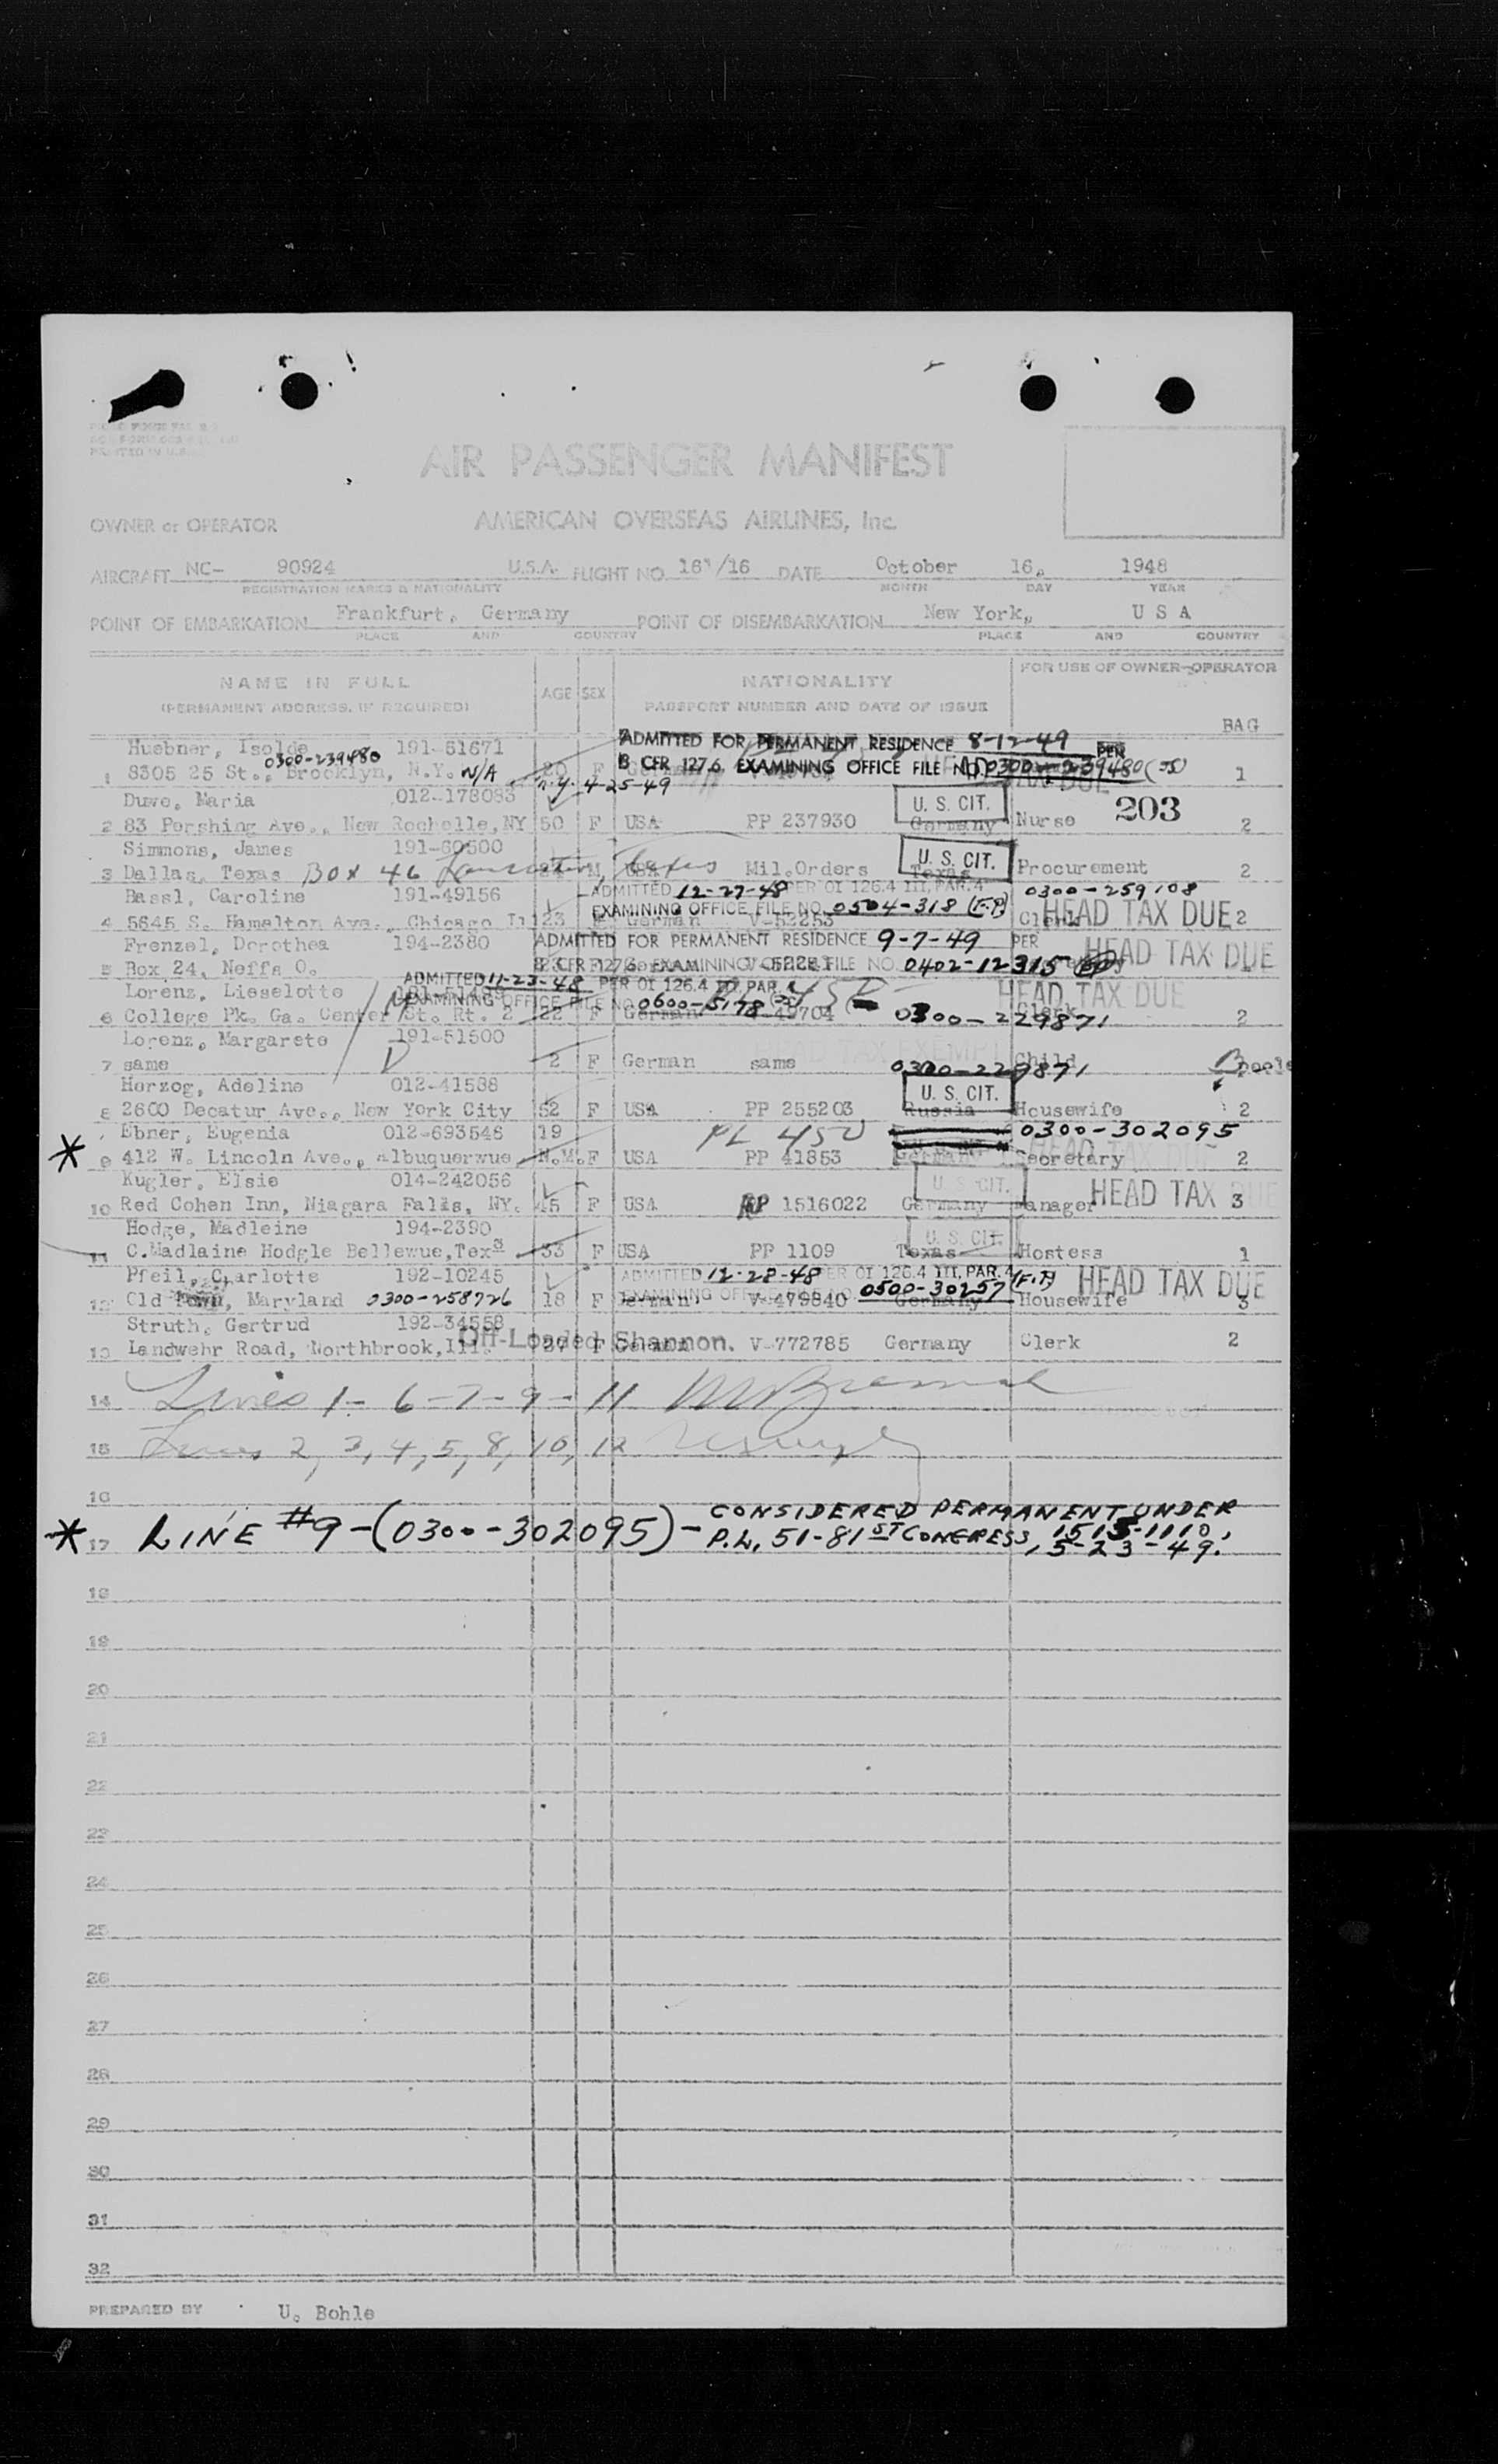 AIR PASSENGER MANIFEST
OWNER or OPERATOR AMERICAN OVERSEAS AIRLINES, Inc.
AIRCRAFT NC- 90924 U.S.A. FLIGHT NO. /16 DATE October 16, 1948
REGISTRATION MARKS & NATIONALITY MONTH DAY YEAR
POINT OF EMBARKATION Frankfurt, Germany POINT OF DISEMBARKATION New York, U S A
PLACE AND COUNTRY PLACE AND COUNTRY
NAME IN FULL AGE SEX NATIONALITY FOR USE OF OWNER-OPERATOR
(PERMANENT ADDRESS, IF REQUIRED) PASSPORT NUMBER AND DATE OF ISSUE
BAG
Huebner, Isolde 191-51671 ADMITTED FOR PERMANENT RESIDENCE 8-12-49 PER
0300-239480
1 8305 25 St., Brooklyn, N.Y. N/A 20 F 8 CFR 127.6 EXAMINING OFFICE FILE NO. 0300-239480 1
N.Y. 4-25-49
Duwe, Maria 012-178083 U. S. CIT. 203
2 83 Pershing Ave., New Rochelle, NY 50 F USA PP 237930 Germany Nurse 2
Simmons, James 191-60500 U. S. CIT.
3 Dallas, Texas Box 46 Texas M USA Mil.Orders Texas Procurement 2
Bassl, Caroline 191-49156 ADMITTED 12-27-48 PER OI 126.4 III, PAR. 4 0300-259108
EXAMINING OFFICE FILE NO. 0504-318 (F.P)
4 5645 S. Hamelton Ave., Chicago Il 23 F German V-52253 Clerk HEAD TAX DUE 2
Frenzel, Dorothea 194-2380 ADMITTED FOR PERMANENT RESIDENCE 9-7-49 PER HEAD TAX DUE
5 Box 24, Neffs O. 8 CFR 127.6 EXAMINING OFFICE FILE NO. 0402-12315
Lorenz, Lieselotte ADMITTED 11-23-48 PER OI 126.4 III PAR. 4 HEAD TAX DUE
EXAMINING OFFICE FILE NO 0600-5178
6 College Pk. Ga. Center St. Rt. 2 22 F German 49704 0300-229871 Clerk 2
Lorenz, Margarete 191-51500 HEAD TAX EXEMPT
7 same 2 F German same 0300-229871 Child
Herzog, Adeline 012-41588 U. S. CIT.
8 2600 Decatur Ave., New York City 52 F USA PP 255203 Russia Housewife 2
* Ebner, Eugenia 012-693546 19 PL 450 0300-302095
9 412 W. Lincoln Ave., Albuquerwue, N.M. F USA PP 41853 Germany Secretary 2
Kugler, Elsie 014-242056 U. S. CIT. HEAD TAX DUE
10 Red Cohen Inn, Niagara Falls, NY. 45 F USA PP 1516022 Germany Manager 3
Hodge, Madleine 194-2390 U. S. CIT.
11 C.Madlaine Hodgle Bellewue,Texs 33 F USA PP 1109 Texas Hostess 1
Pfeil, Charlotte 192-10245 ADMITTED 12-28-48 PER OI 126.4 III, PAR. 4 HEAD TAX DUE
EXAMINING OFFICE 0500-30257 (F.P)
12 Old Town, Maryland 0300-258726 18 F German V-479840 Germany Housewife 3
Struth, Gertrud 192-34558 Off-Loaded Shannon.
13 Landwehr Road, Northbrook, Ill. 27 F V-772785 Germany Clerk 2
14 Lines 1-6-7-9-11
15 Lines 2, 3, 4, 5, 8, 10, 12
16
* 17 LINE #9-(0300-302095)- CONSIDERED PERMANENT UNDER
P.L. 51-81ST CONGRESS, 5-23-49.
18
19
20
21
22
23
24
25
26
27
28
29
30
31
32
PREPARED BY U. Bohle